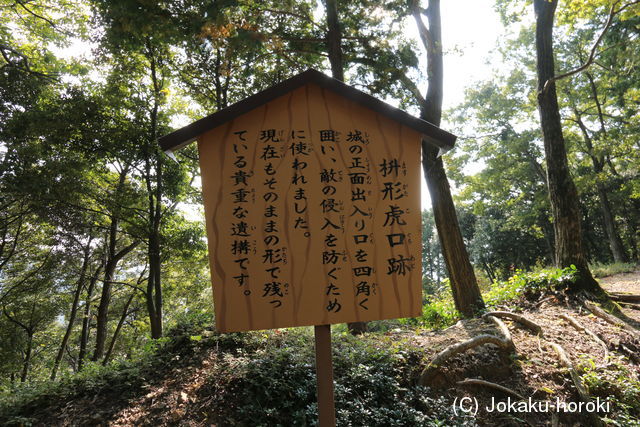 枡形虎口跡
城の正面出入り口を四角く
囲い、敵の侵入を防ぐため
に使われました。
現在もそのままの形で残っ
ている貴重な遺構です。
(C) Jokaku-horoki